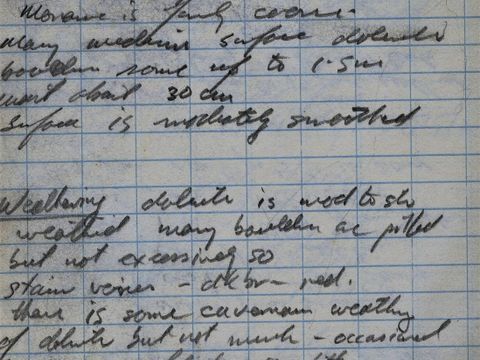 Moraine is fairly coarse.
many medium surface dolerite
boulders some up to 1.5m
most about 30 cm
Surface is moderately smoothed
Weathering dolerite is mod to str
weathered many boulders are pitted
but not excessively so
stain varies - dk br - red.
there is some cavernous weathering
of dolerite but not much - occasional